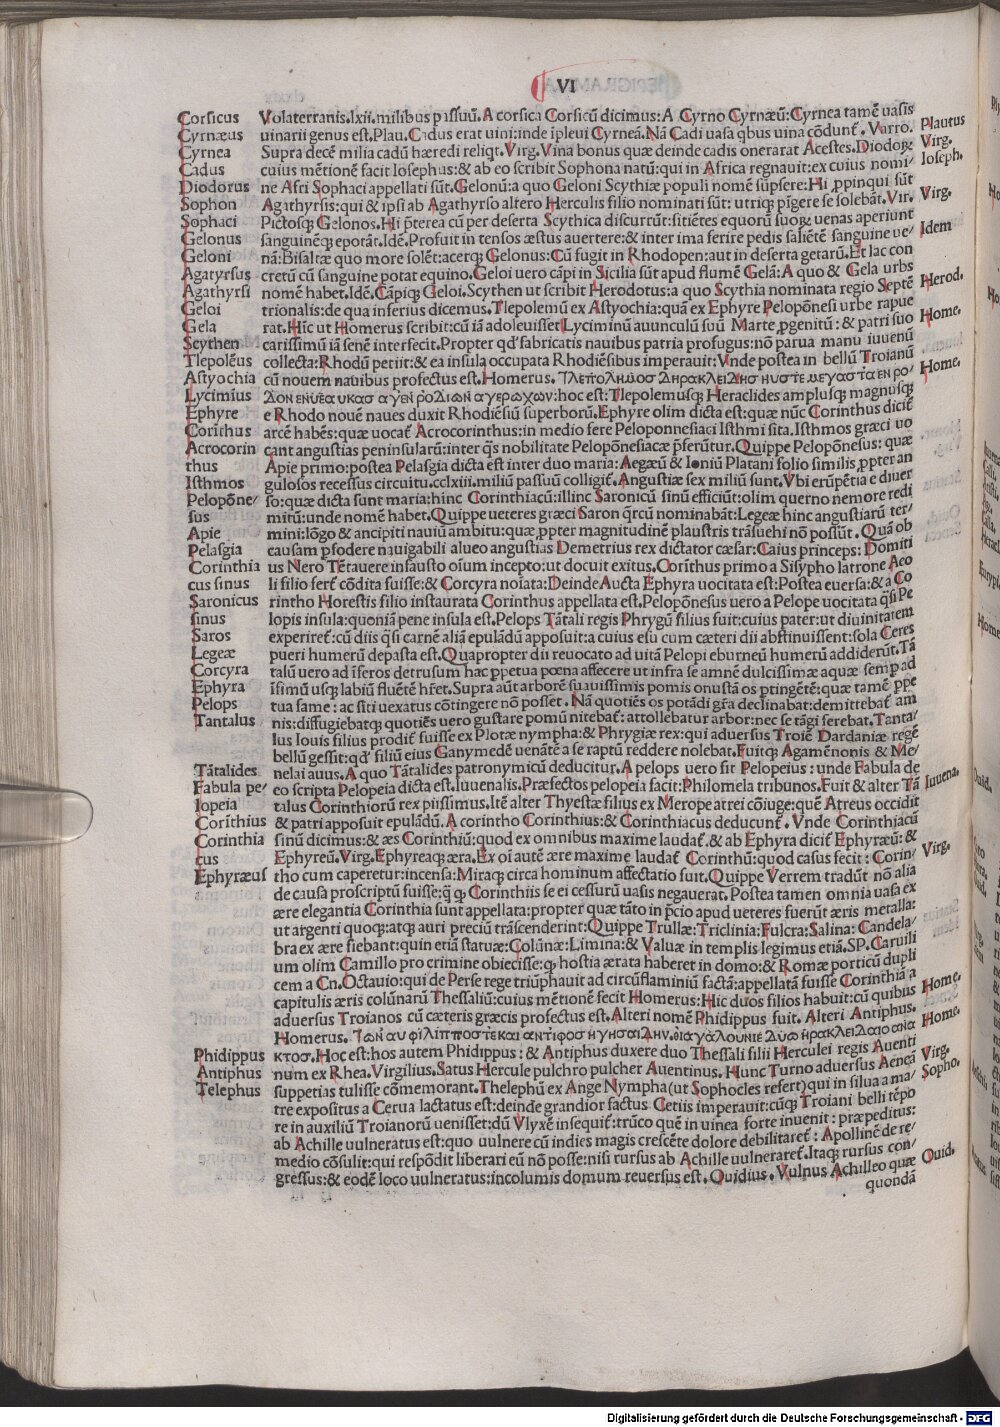 VI
Corsicus
Cyrnæus
Cyrnea
Cadus
Diodorus
Sophon
Sophaci
Gelonus
Geloni
Agatyrsus
Agathyrsi
Geloi
Gela
Scythen
Tlepolēus
Astyochia
Lycimius
Ephyre
Corīthus
Acrocorin
thus
Isthmos
Pelopōne/
sus
Apie
Pelasgia
Corinthia
cus sinus
Saronicus
sinus
Saros
Legeæ
Corcyra
Ephyra
Pelops
Tantalus
Tātalides
Fabula pe/
lopeia
Corīthius
Corinthia
cus
Ephyræus
Phidippus
Antiphus
Telephus
Volaterranis.lxii.milibus passuū.A corsica Corsicū dicimus:A Cyrno Cyrnæū:Cyrnea tamē uasis
uinarii genus est.Plau.Cadus erat uini:inde īpleui Cyrneā.Nā Cadi uasa qbus uina cōdunt̄.Varro.
Supra decē milia cadū hæredi reliqt.Virg.Vina bonus quæ deinde cadis onerarat Acestes.Diodoꝝ
cuius mētionē facit Iosephus:& ab eo scribit Sophona natū:qui in Africa regnauit:ex cuius nomi/
ne Afri Sophaci appellati sūt.Gelonū:a quo Geloni Scythiæ populi nomē sūpsere:Hi ꝓpinqui sūt
Agathyrsis:qui & ipsi ab Agathyrso altero Herculis filio nominati sūt: utriqꝫ pīgere se solebāt.Vir.
Pictosqꝫ Gelonos.Hi p̄terea cū per deserta Scythica discurrūt:sitiētes equorū suoꝝ uenas aperiunt
sanguinēqꝫ epotāt.Idē.Profuit in tensos æstus auertere:& inter ima ferire pedis saliētē sanguine ue/
nā:Bisaltæ quo more solēt:acerqꝫ Gelonus:Cū fugit in Rhodopen:aut in deserta getarū.Et lac con
cretū cū sanguine potat equino.Geloi uero cāpi in Sicilia sūt apud flumē Gelā:A quo & Gela urbs
nomē habet.Idē.Cāpiqꝫ Geloi.Scythen ut scribit Herodotus:a quo Scythia nominata regio Septē
trionalis:de qua inferius dicemus.Tlepolemū ex Astyochia:quā ex Ephyre Pelopōnesi urbe rapue
rat.Hic ut Homerus scribit:cū iā adoleuisset Lyciminū auunculū suū Marte ꝓgenitū:& patri suo
carissimū iā senē interfecit.Propter qd' fabricatis nauibus patria profugus:nō parua manu iuuenū
collecta:Rhodū petiit:& ea insula occupata Rhodiēsibus imperauit:Vnde postea in bellū Troianū
cū nouem nauibus profectus est.Homerus.
hoc est:Tlepolemusqꝫ Heraclides amplusqꝫ magnusqꝫ
e Rhodo nouē naues duxit Rhodiēsiū superborū.Ephyre olim dicta est:quæ nūc Corinthus dicit̄
arcē habēs:quæ uocat̄ Acrocorinthus:in medio fere Peloponnesiaci Isthmi sita.Isthmos græci uo
cant angustias peninsularū:inter q̄s nobilitate Pelopōnesiacæ p̄ferūtur.Quippe Pelopōnesus: quæ
Apie primo:postea Pelasgia dicta est inter duo maria:Aegæū & Ioniū Platani folio similis ꝓpter an
gulosos recessus circuitu.cclxiii.miliū passuū colligit̄.Angustiæ sex miliū sunt.Vbi erūpētia e diuer
so:quæ dicta sunt maria:hinc Corinthiacū:illinc Saronicū sinū efficiūt:olim querno nemore redi
mitū:unde nomē habet.Quippe ueteres græci Saron q̄rcū nominabāt:Legeæ hinc angustiarū ter/
mini:lōgo & ancipiti nauiū ambitu:quæ ꝓpter magnitudinē plaustris trāsuehi nō possūt.Quā ob
causam ꝑfodere nauigabili alueo angustias Demetrius rex dictator cæsar:Caius princeps:Domiti
us Nero Tētauere infausto oīum incepto:ut docuit exitus.Corīthus primo a Sisypho latrone Aeo
li filio fert̄ cōdita fuisse:& Corcyra noīata:Deinde Aucta Ephyra uocitata est:Postea euersa:& a Co
rintho Horestis filio instaurata Corinthus appellata est.Pelopōnesus uero a Pelope uocitata q̄si Pe
lopis insula:quoniā pene insula est.Pelops Tātali regis Phrygū filius fuit:cuius pater:ut diuinitatem
experiret̄:cū diis q̄si carnē aliā epulādū apposuit:a cuius esu cum cæteri dii abstinuissent:sola Ceres
pueri humerū depasta est.Quapropter dii reuocato ad uitā Pelopi eburneū humerū addiderūt.Tā
talū uero ad īferos detrusum hac ꝑpetua pœna affecere ut infra se amnē dulcissimæ aquæ semꝑ ad
īsimū usqꝫ labiū fluētē hr̄et.Supra aūt arborē suauissimis pomis onustā os ptīgētē:quæ tamē ꝑpe
tua fame:ac siti uexatus cōtingere nō posset. Nā quotiēs os potādi gr̄a declinabat:demittebat̄ am
nis:diffugiebatqꝫ quotiēs uero gustare pomū nitebat̄:attollebatur arbor:nec se tāgi ferebat.Tanta/
lus Iouis filius prodit̄ fuisse ex Plotæ nympha:& Phrygiæ rex:qui aduersus Troiē Dardaniæ regē
bellū gessit:qd' filiū eius Ganymedē uenātē a se raptū reddere nolebat.Fuitqꝫ Agamēnonis & Me/
nelai auus.A quo Tātalides patronymicū deducitur.A pelops uero fit Pelopeius:unde Fabula de
eo scripta Pelopeia dicta est.Iuuenalis.Præfectos pelopeia facit:Philomela tribunos.Fuit & alter Tā
talus Corinthiorū rex piissimus.Itē alter Thyestæ filius ex Merope atrei cōiuge:quē Atreus occidit
& patri apposuit epulādū.A corintho Corinthius:& Corinthiacus deducunt̄. Vnde Corinthiacū
sinū dicimus:& æs Corinthiū:quod ex omnibus maxime laudat̄.& ab Ephyra dicit̄ Ephyræū:&
Ephyreū.Virg.Ephyreaqꝫ æra.Ex oī autē ære maxime laudat̄ Corinthū:quod casus fecit: Corin/
tho cum caperetur:incensa:Miraqꝫ circa hominum affectatio fuit.Quippe Verrem tradūt nō alia
de causa proscriptū fuisse:q̄ qꝫ Corinthiis se ei cessurū uasis negauerat.Postea tamen omnia uasa ex
ære elegantia Corinthia sunt appellata:propter quæ tāto in p̄cio apud ueteres fuerūt æris metalla:
ut argenti quoqꝫ:atqꝫ auri preciū trāscenderint:Quippe Trullæ:Triclinia:Fulcra:Salina:Candela/
bra ex ære fiebant:quin etiā statuæ:Colūnæ:Limina:& Valuæ in templis legimus etiā.SP.Caruili
um olim Camillo pro crimine obiecisse:qꝫ hostia ærata haberet in domo:& Romæ porticū dupli
cem a Cn.Octauio:qui de Perse rege triūphauit ad circūflaminiū factā:appellatā fuisse Corinthiā a
capitulis æris colūnarū Thessaliū:cuius mētionē fecit Homerus:Hic duos filios habuit:cū quibus
aduersus Troianos cū cæteris græcis profectus est.Alteri nomē Phidippus fuit. Alteri Antiphus.
Homerus.
Hoc est:hos autem Phidippus:& Antiphus duxere duo Thessali filii Herculei regis Auenti
num ex Rhea.Virgilius.Satus Hercule pulchro pulcher Auentinus.Hunc Turno aduersus Aeneā
suppetias tulisse cōmemorant.Thelephū ex Ange Nympha(ut Sophocles refert)qui in silua a ma/
tre expositus a Cerua lactatus est:deinde grandior factus Cetiis imperauit:cūqꝫ Troiani belli tēpo
re in auxiliū Troianorū uenisset:dū Vlyxē insequit̄:trūco quē in uinea forte inuenit:præpeditus:
ab Achille uulneratus est:quo uulnere cū indies magis crescēte dolore debilitaret̄: Apollinē de re/
medio cōsulit:qui respōdit liberari eū nō posse:nisi rursus ab Achille uulneraret̄.Itaqꝫ rursus con/
gressus:& eodē loco uulneratus:incolumis domum reuersus est.Ouidius.Vulnus Achilleo quæ
quondā
Plautus
Virg.
Ioseph.
Virg.
Idem
Herod.
Home.
Home.
Iuuena.
Virg.
Home.
Home.
Virg.
Sopho.
Ouid.
Digitalisierung gefördert durch die Deutsche Forschungsgemeinschaft - DFG